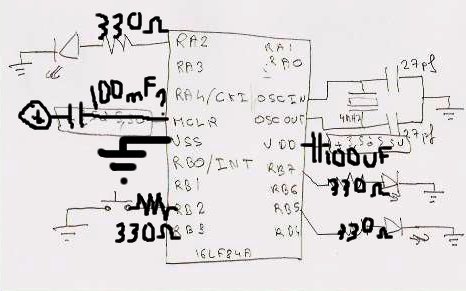 330Ω
RA2
RA3
RA4/CKI
MCLR
VSS
RB0/INT
RB1
RB2
RB3
RA1
RA0
OSCIN
OSCOUT
VDD
RB7
RB6
RB5
RB4
16LF84A
100mF
+
330Ω
27pf
4MHZ
27pf
100UF
330Ω
330Ω